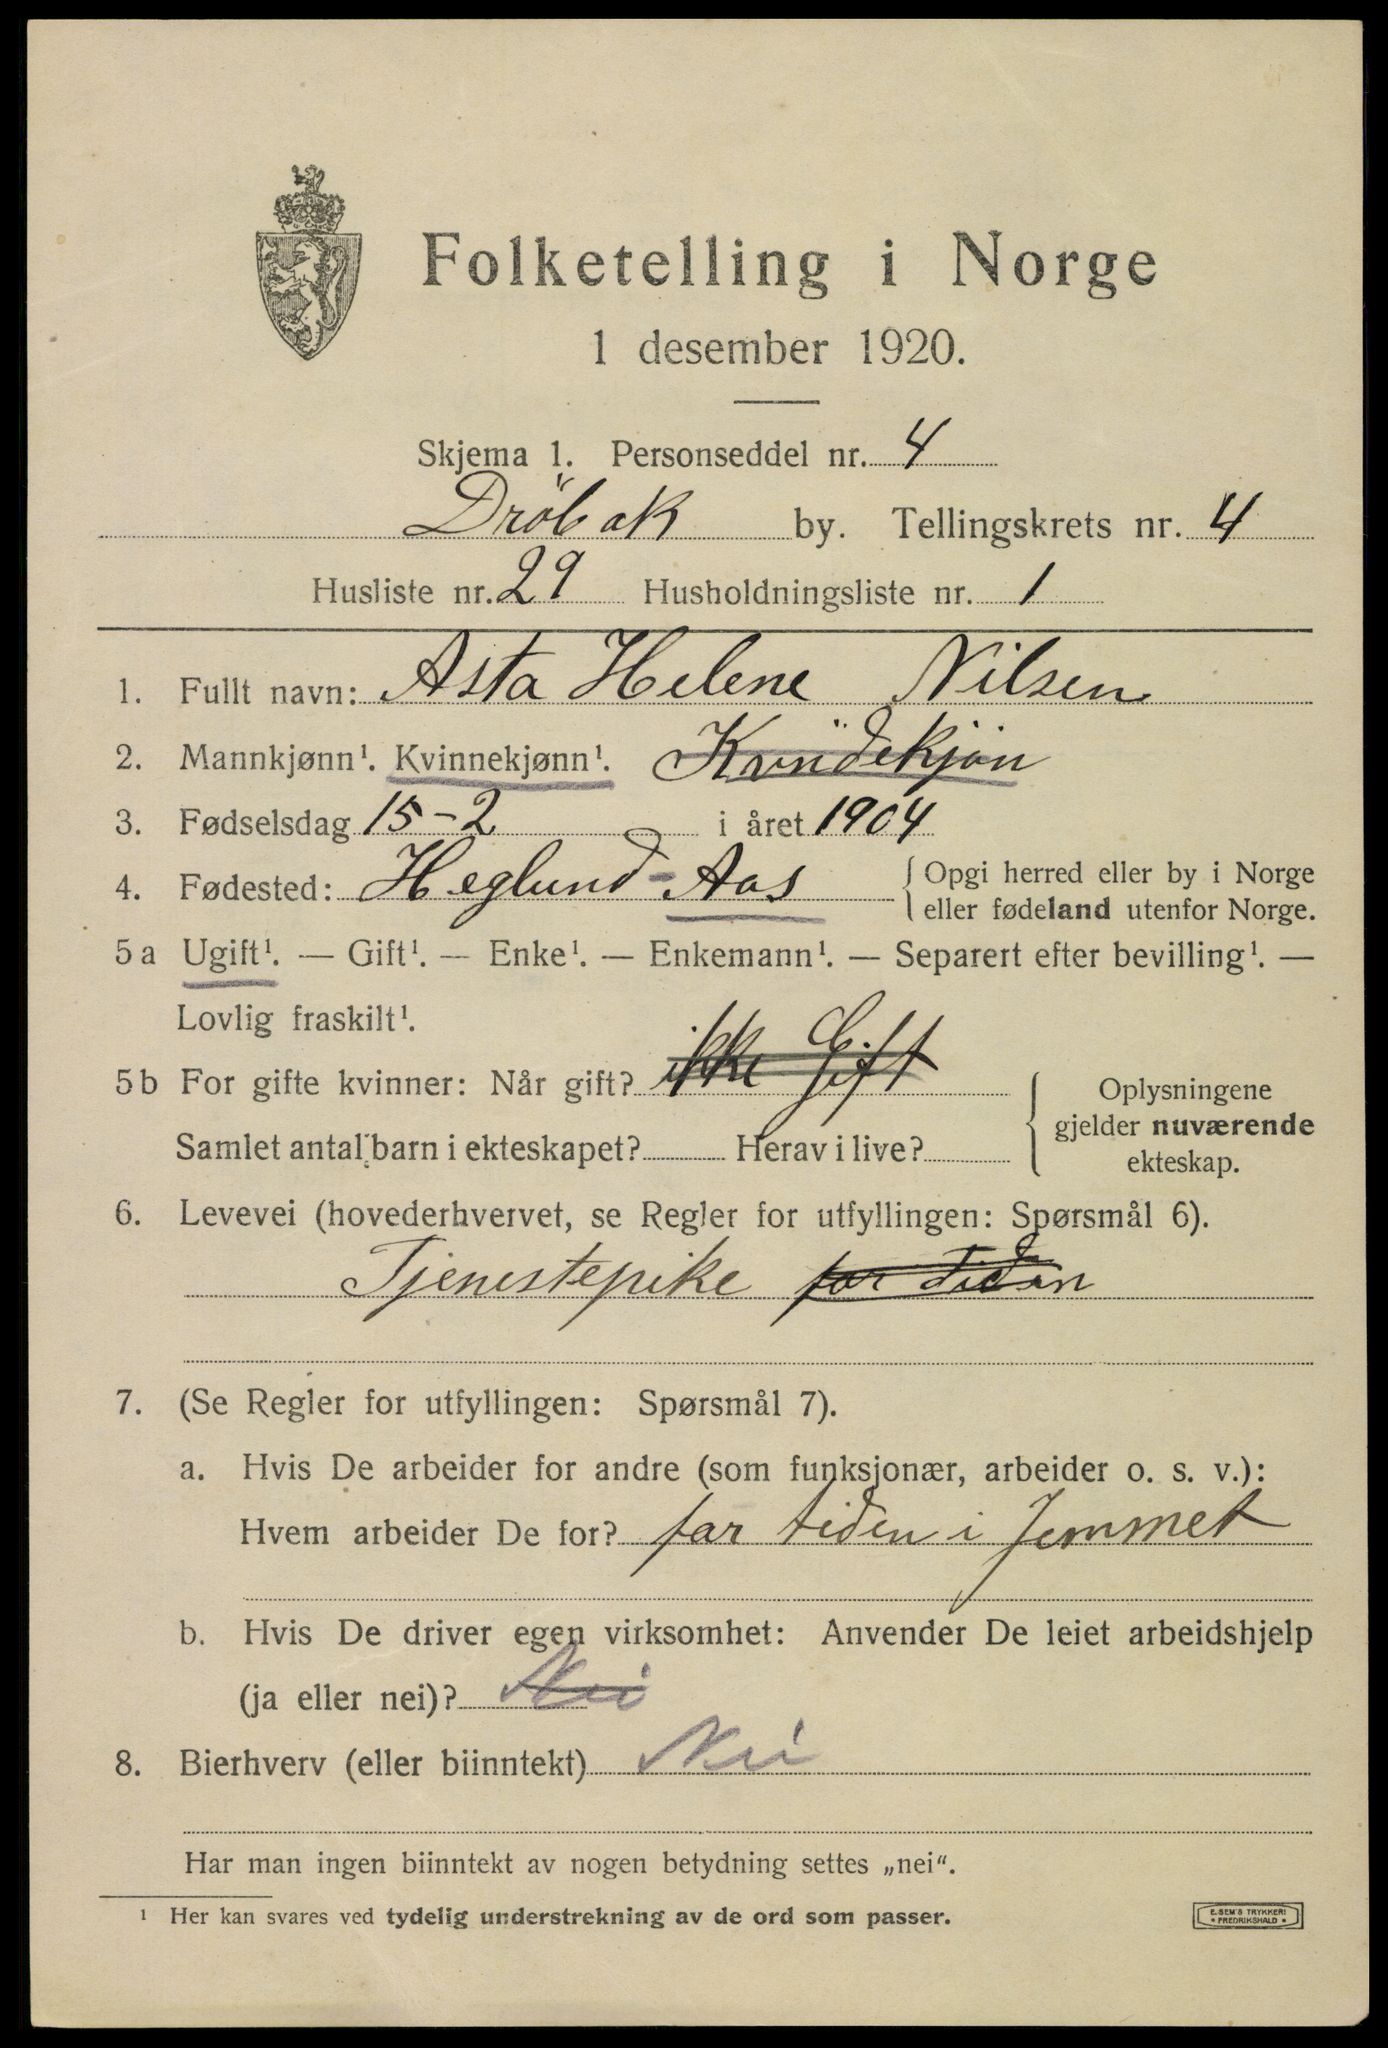 Folketelling i Norge
1 desember 1920.
Skjema 1. Personseddel nr. 4
Dröbak by. Tellingskrets nr. 4
Husliste nr. 29 Husholdningsliste nr. 1
1. Fullt navn: Asta Helene Nilsen
2. Mannkjønn¹. Kvinnekjønn¹. Kvndekjön
3. Fødselsdag 15-2 i året 1904
4. Fødested: Heglund-Aas
Opgi herred eller by i Norge
eller fødeland utenfor Norge.
5 a Ugift¹. — Gift¹. — Enke¹. — Enkemann¹. — Separert efter bevilling¹. —
Lovlig fraskilt¹.
5 b For gifte kvinner: Når gift? ikke Gift
Samlet antal barn i ekteskapet? Herav i live?
Oplysningene
gjelder nuværende
ekteskap.
6. Levevei (hovederhvervet, se Regler for utfyllingen: Spørsmål 6).
Tjenestepike for tiden
7. (Se Regler for utfyllingen: Spørsmål 7).
a. Hvis De arbeider for andre (som funksjonær, arbeider o. s. v.):
Hvem arbeider De for? for tiden i Jemmet
b. Hvis De driver egen virksomhet: Anvender De leiet arbeidshjelp
(ja eller nei)? Nei
8. Bierhverv (eller biinntekt) Nei
Har man ingen biinntekt av nogen betydning settes „nei“.
¹ Her kan svares ved tydelig understrekning av de ord som passer.
E. SEM'S TRYKKERI
* FREDRIKSHALD *